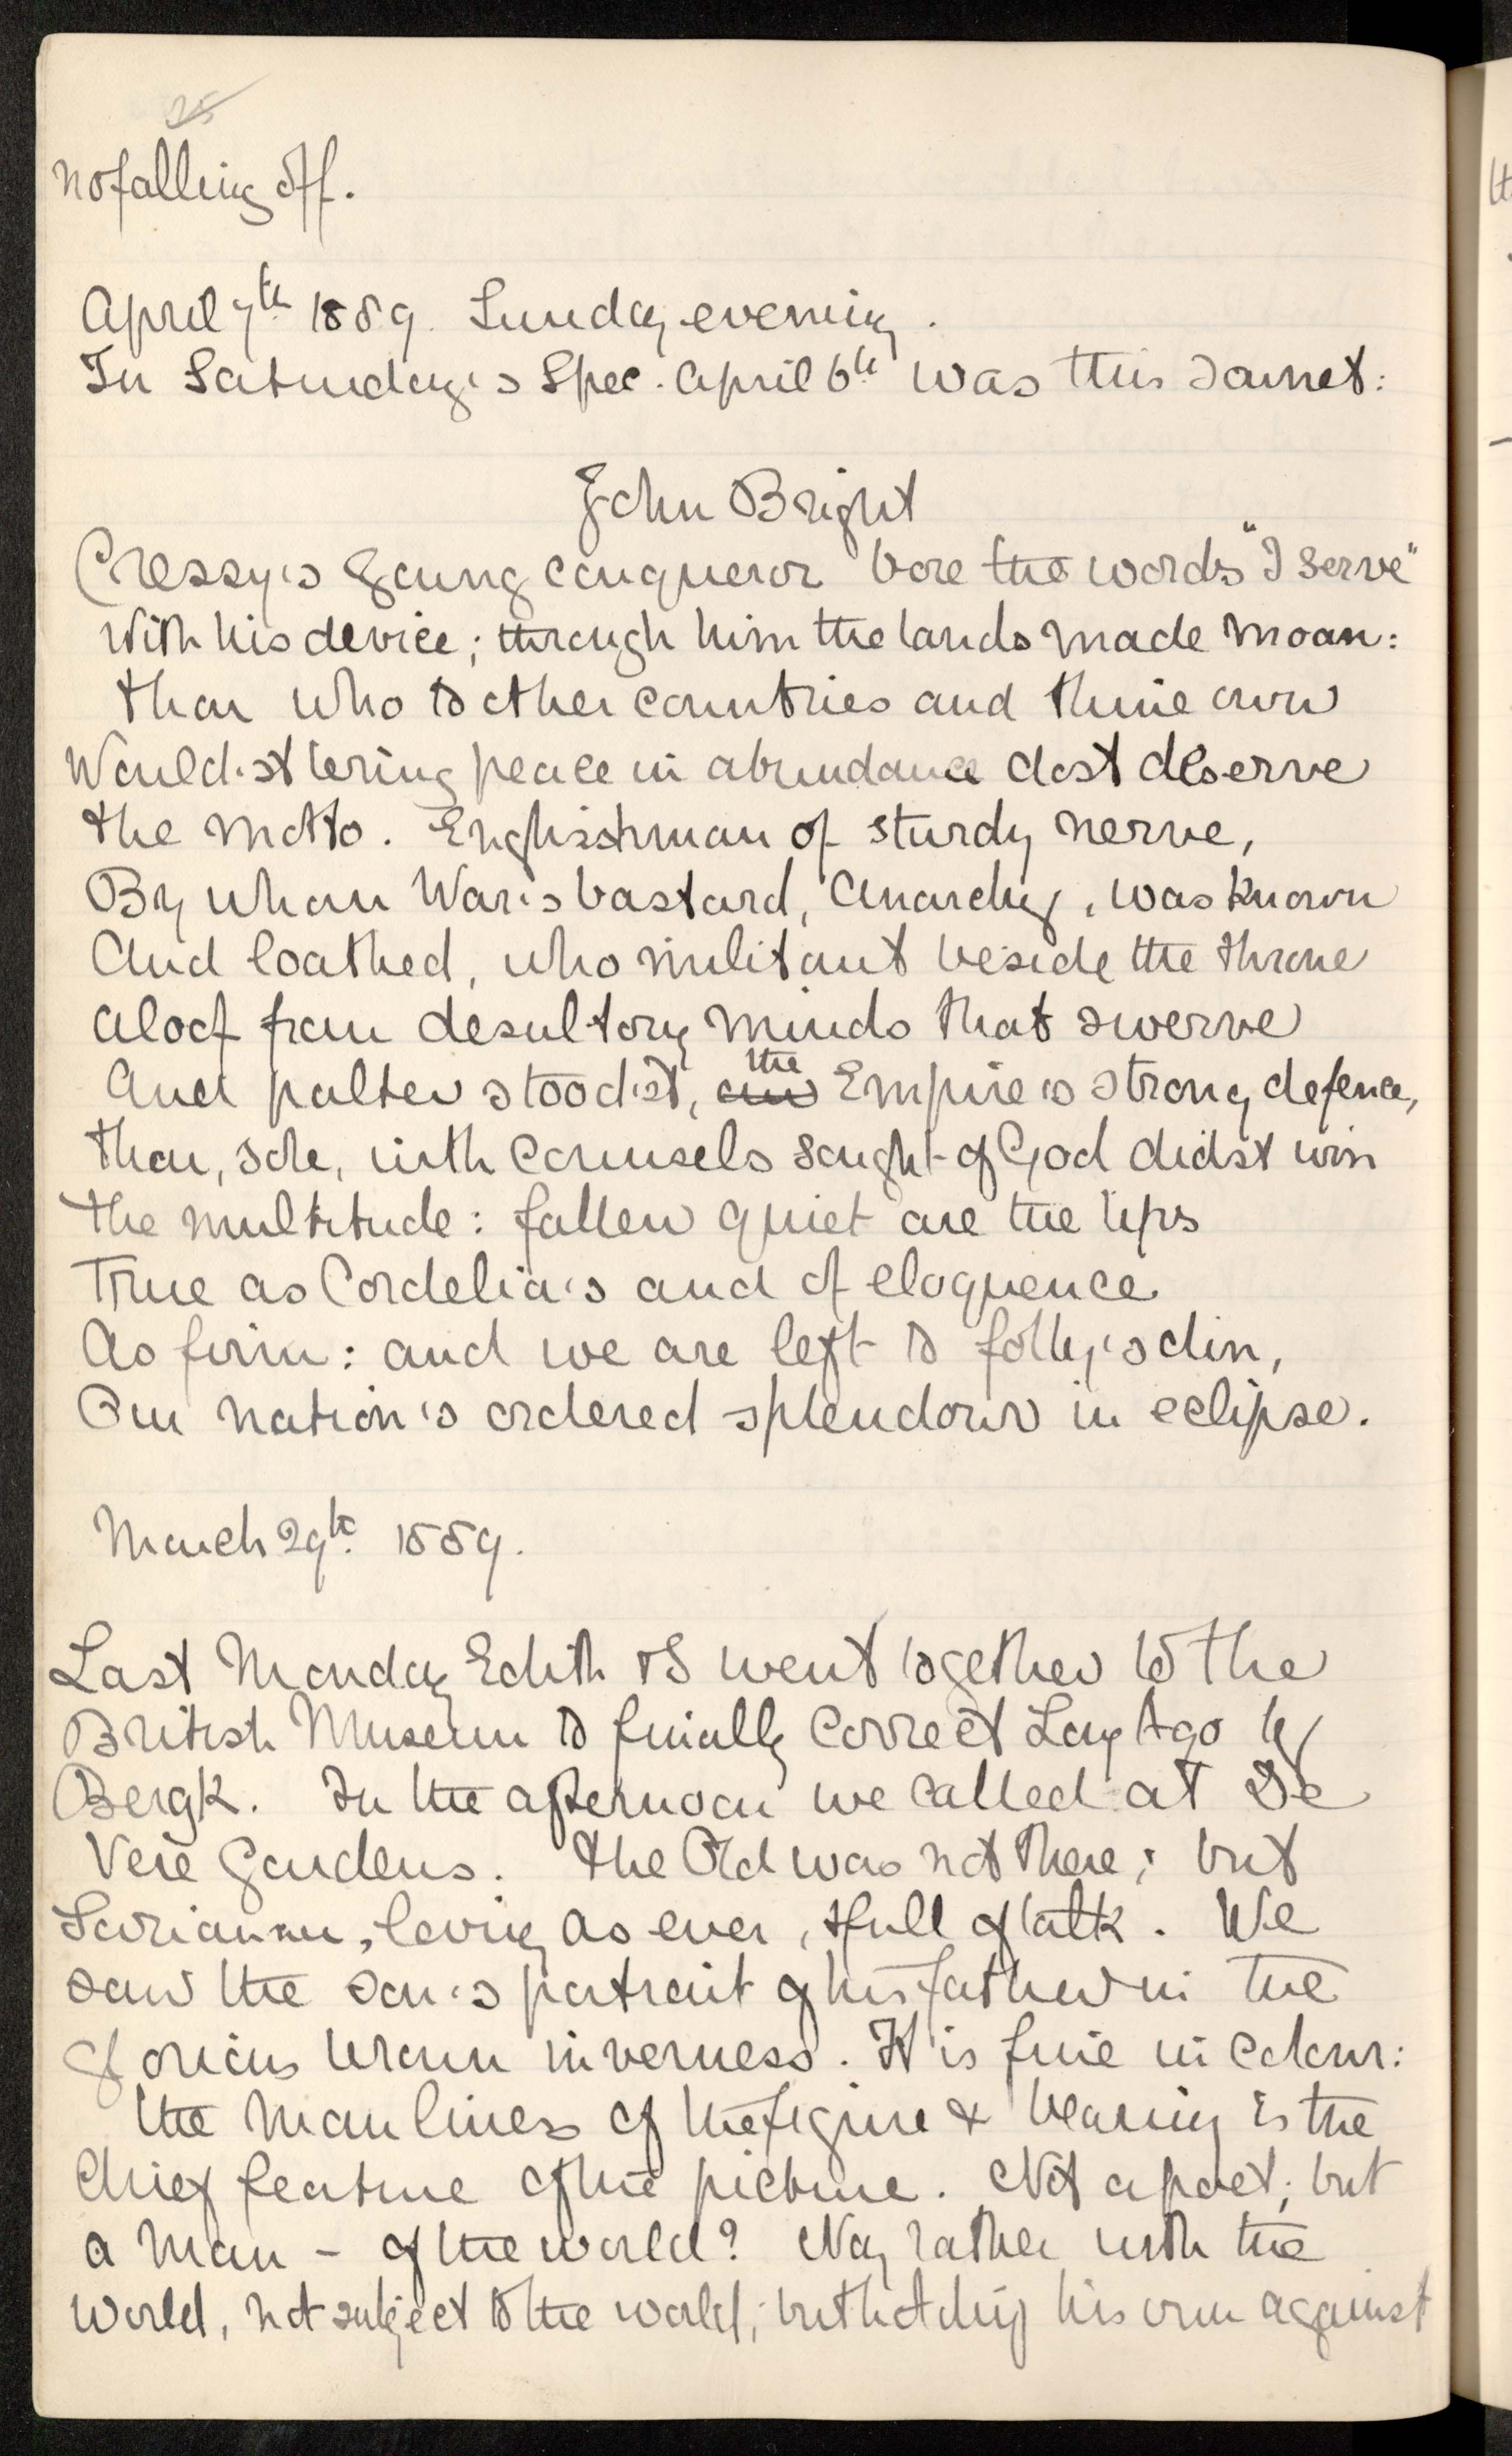 25
no falling off.
April 7th 1889. Sunday evening.
In Saturday's Spec. April 6th was this sonnet:
John Bright
Cressy's young conqueror bore the words "I serve"
With his device; through him the lands made moan:
thou who to other countries and thine own
Would'st bring peace in abundance dost deserve
the motto. Englishman of sturdy nerve,
By whom War's bastard, Anarchy, was known
And loathed, who militant beside the throne
aloof from desultory minds that swerve
And palter stood'st, our the Empire's strong defence,
thou, sole, with counsels sought of God didst win
the multitude: fallen quiet are the lips
True as Cordelia's and of eloquence
As firm: and we are left to folly's din,
Our nation's ordered splendour in eclipse.
March 29th 1889.
Last Monday Edith & I went together to the
British Museum to finally correct Long Ago by
Bergk. In the afternoon we called at De
Vere Gardens. The Old was not there; but
Sarianna, loving as ever, & full of talk. We
saw the son's portrait of his father in the
glorious brown inverness. It is fine in colour:
the manliness of the figure & bearing is the
Chief feature of the picture. Not a poet; but
a man - of the world? Nay rather with the
World, not subject to the world; but holding his own against